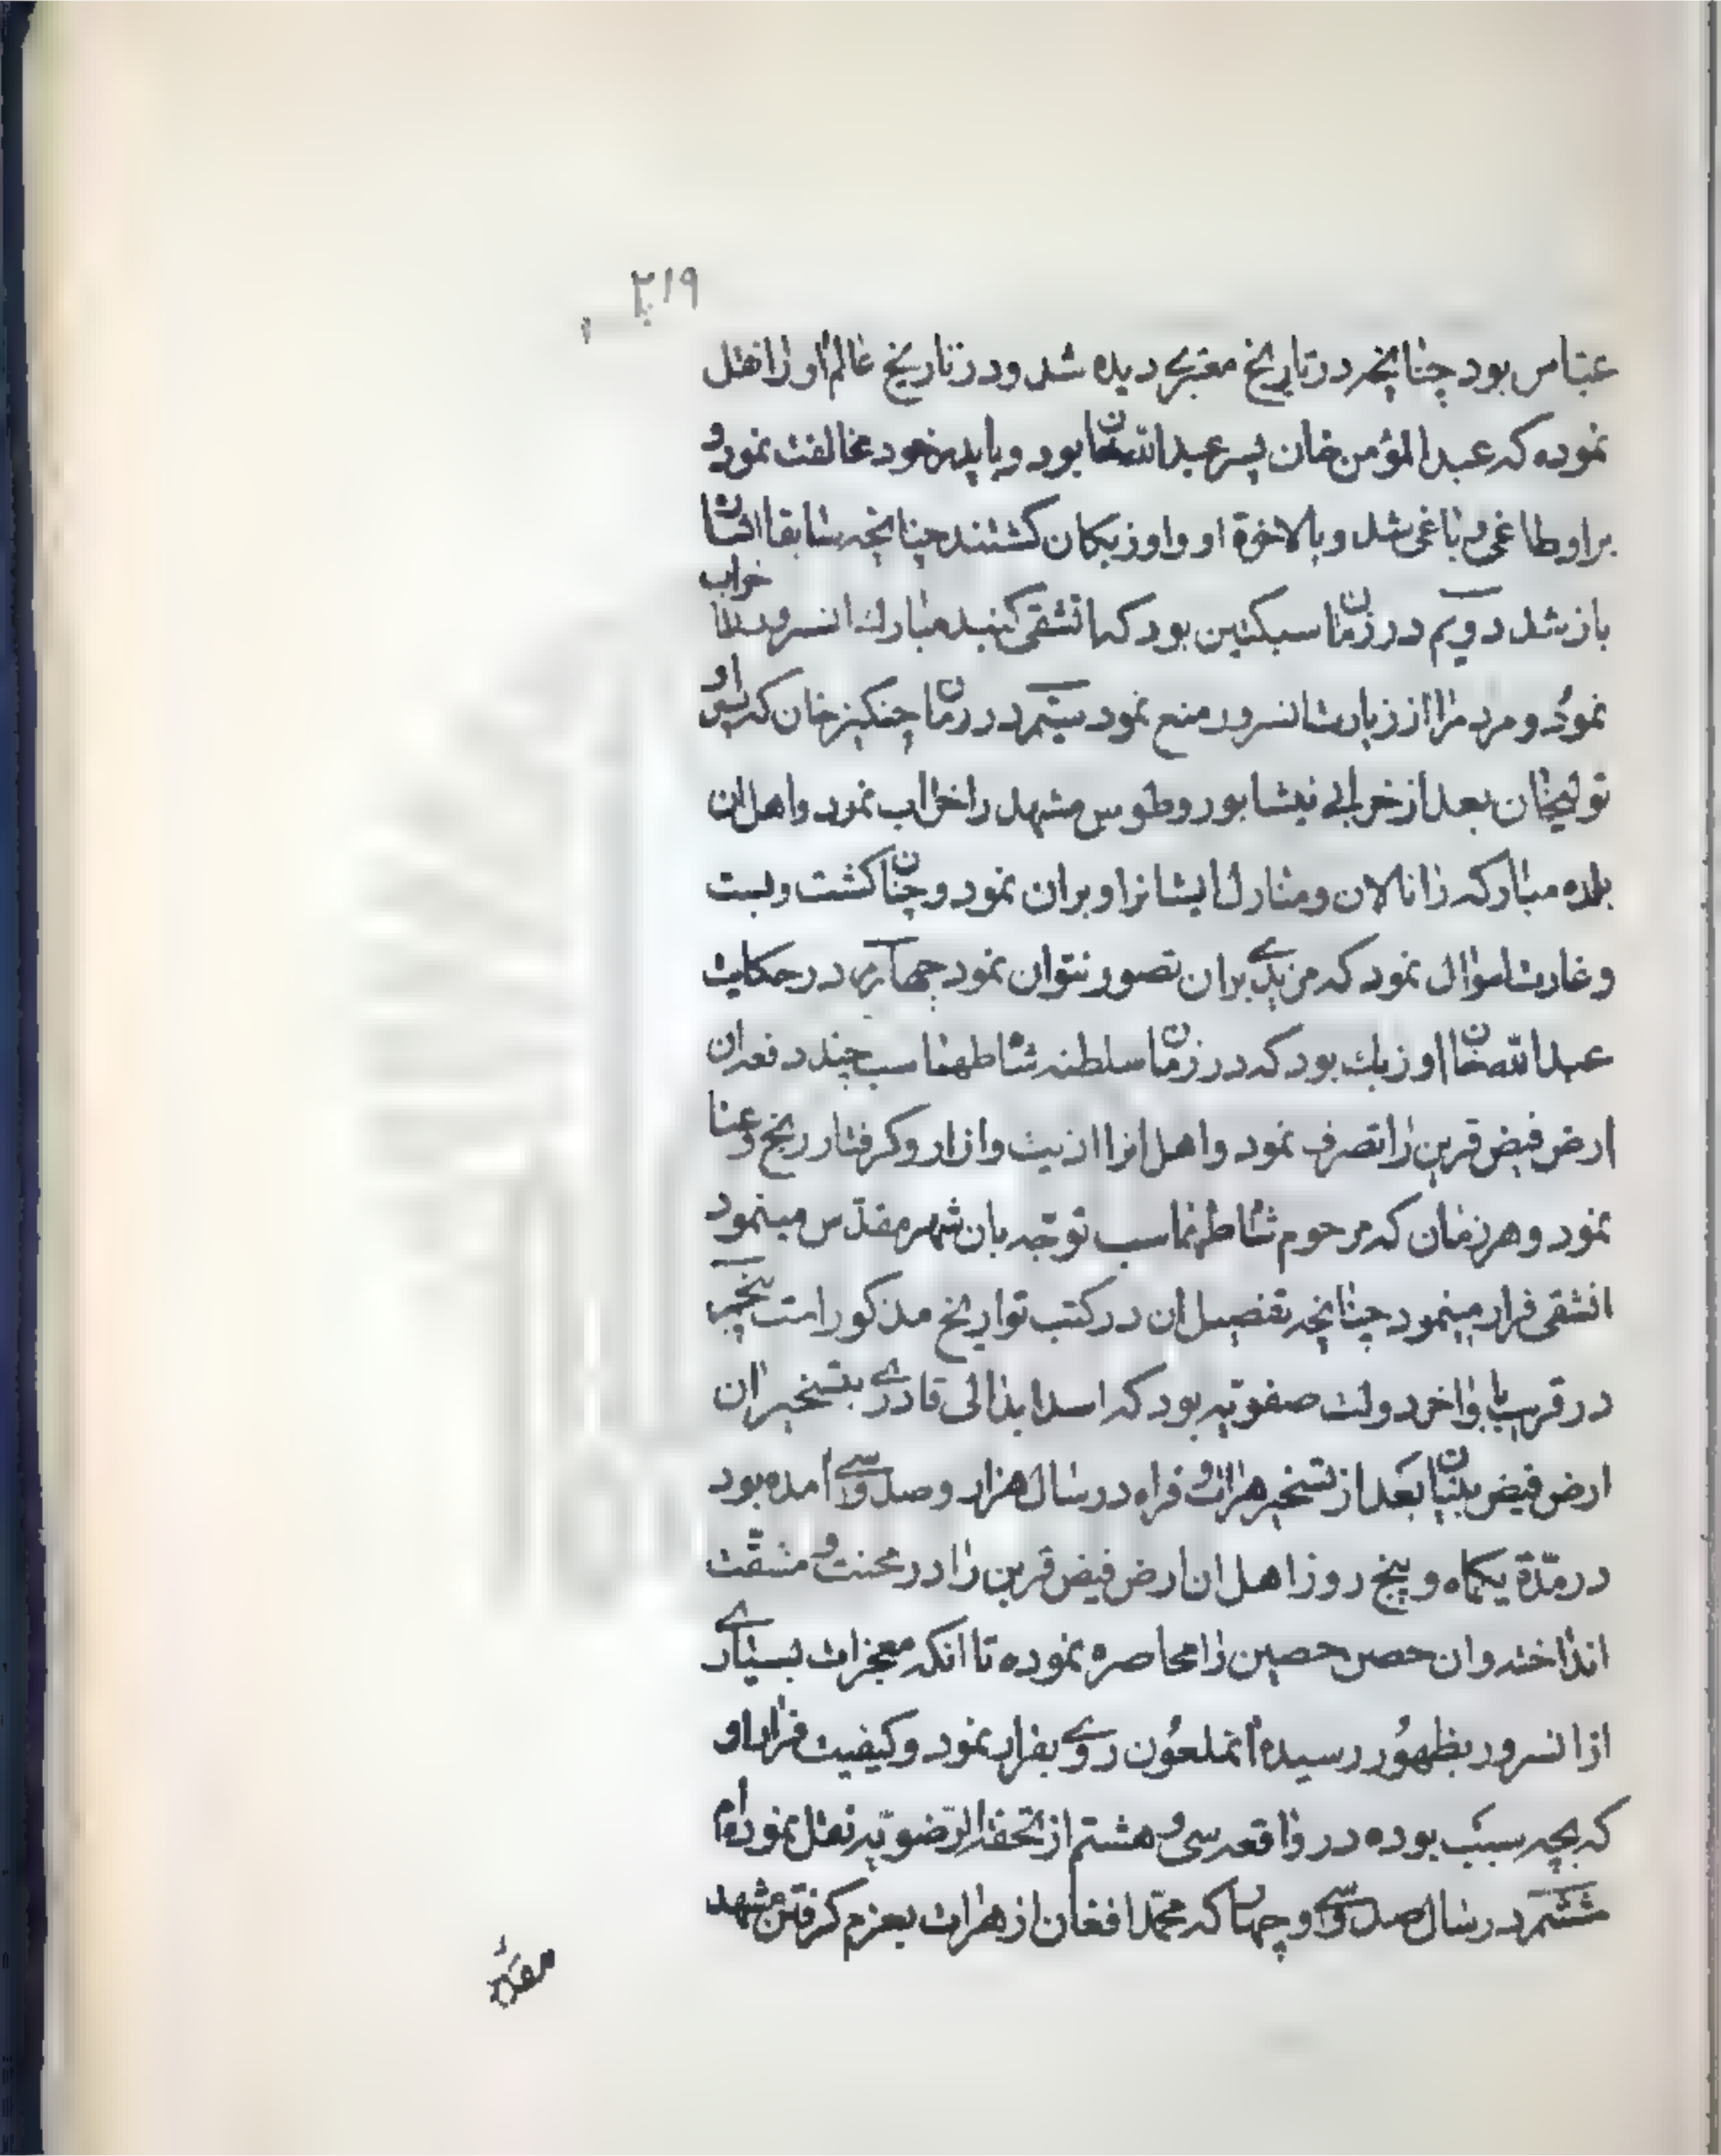 ۲۱۹
عباس بود چنانچه در تاریخ معتبری دیده شد و در تاریخ عالم آرا نقل
نموده که عبدالمؤمن خان پسر عبدالله خان بود و با پدر خود مخالفت نمود و
بر او طاغی و باغی شد و بالاخرة او را اوزبکان کشتند چنانچه سابقا اشاره
باز شد دویم در زمان سبکتین بود که انشقی کنبد مبارک انسرور را خراب
نمود و مردم را از زیارت انسرور منع نمود سیّم در زمان چنکیز خان که پسر او
تولیخان بعد از خرابی نیشابور و طوس مشهد را خراب نمود و اهل ان
بلده مبارکه را نالان و منازل ایشانرا ویران نمود و چنان کشت و بست
و غارت اموال نمود که مزیدی بران تصور نتوان نمود چهارم در حکایت
عبدالله خان اوزبک بود که در زمان سلطنه شاه طهماسب چند دفعه ان
ارض فیض قرین را تصرف نمود و اهل انرا اذیت و ازار و کرفتار رنج و عنا
نمود و هر زمان که مرحوم شاه طهماسب توجه بان شهر مقدّس مینمود
انشقی فرار مینمود چنانچه تفصیل ان در کتب تواریخ مذکور است پنجم
در قریب باواخر دولت صفویّه بود که اسد ابدالی قادری بتسخیر ان
ارض فیض بنیان بعد از تسخیر هرات و فراه در سال هزار و صد و سی امده بود
در مدّة یکماه و پنج روز اهل ان ارض فیض قرین را در محنت و مشقّت
انداخته و ان حصن حصین را محاصره نموده تا انکه معجزات بسیاری
از انسرور بظهور رسیده انملعون روی بفرار نمود و کیفیت فرار او
که بچه سبب بوده در واقعه سی و هشتم از تحفة الرّضویّه نقل نموده‌ام
ششم در سال صد و سی و چهار که محمّد افغان از هرات بعزم کرفتن مشهد
مقدّ